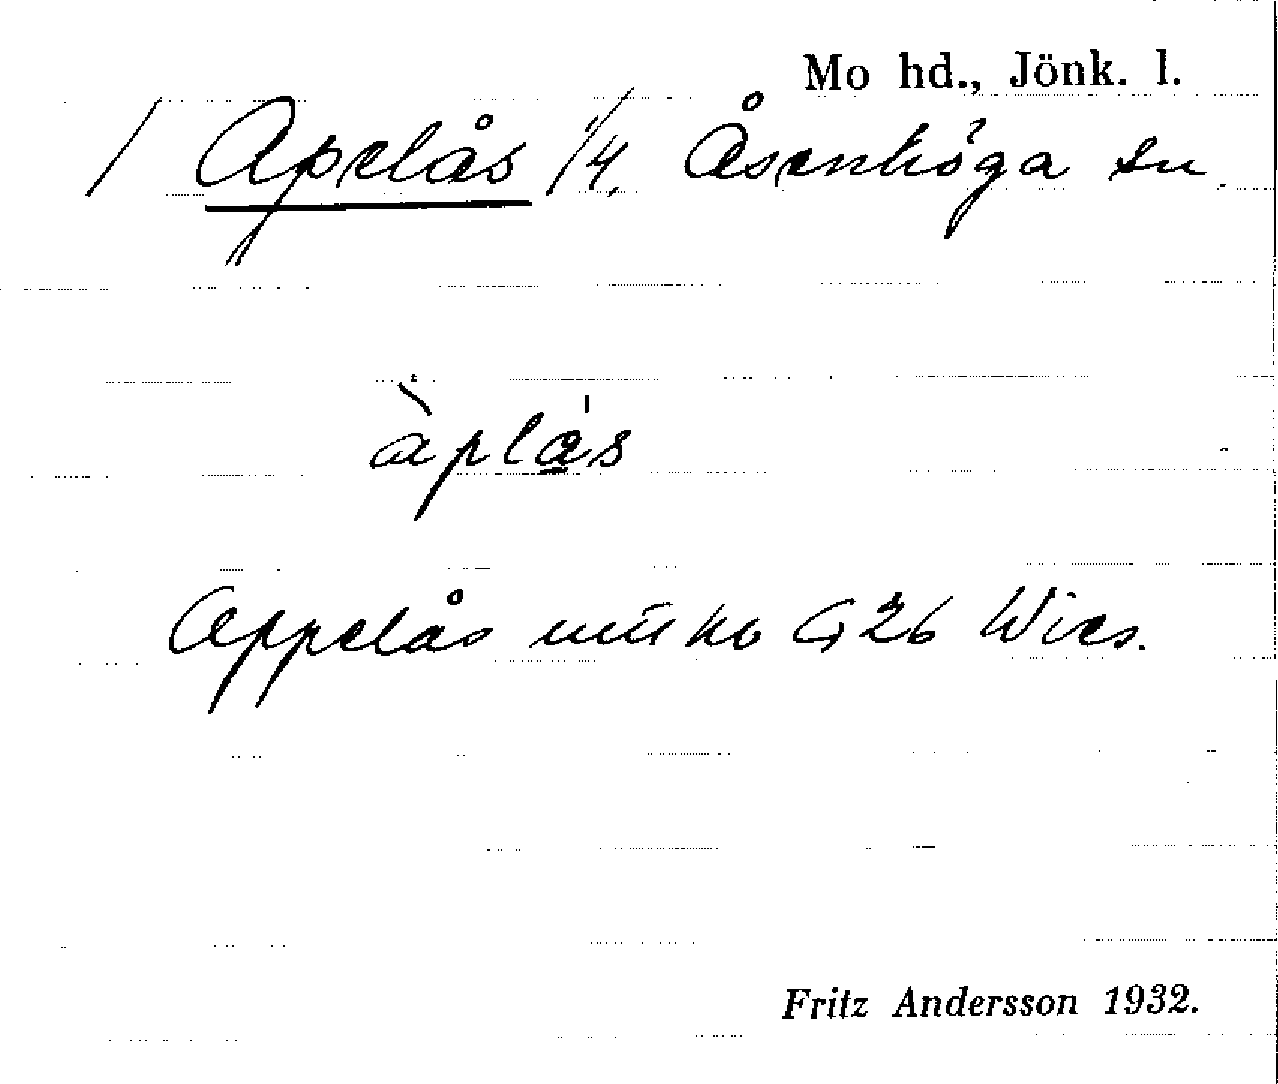 Mo hd., Jönk. l.
/ Apelås 1/4, Åsenhöga sn
àplås
Appelås G 26 Wies.
Fritz Andersson 1932.